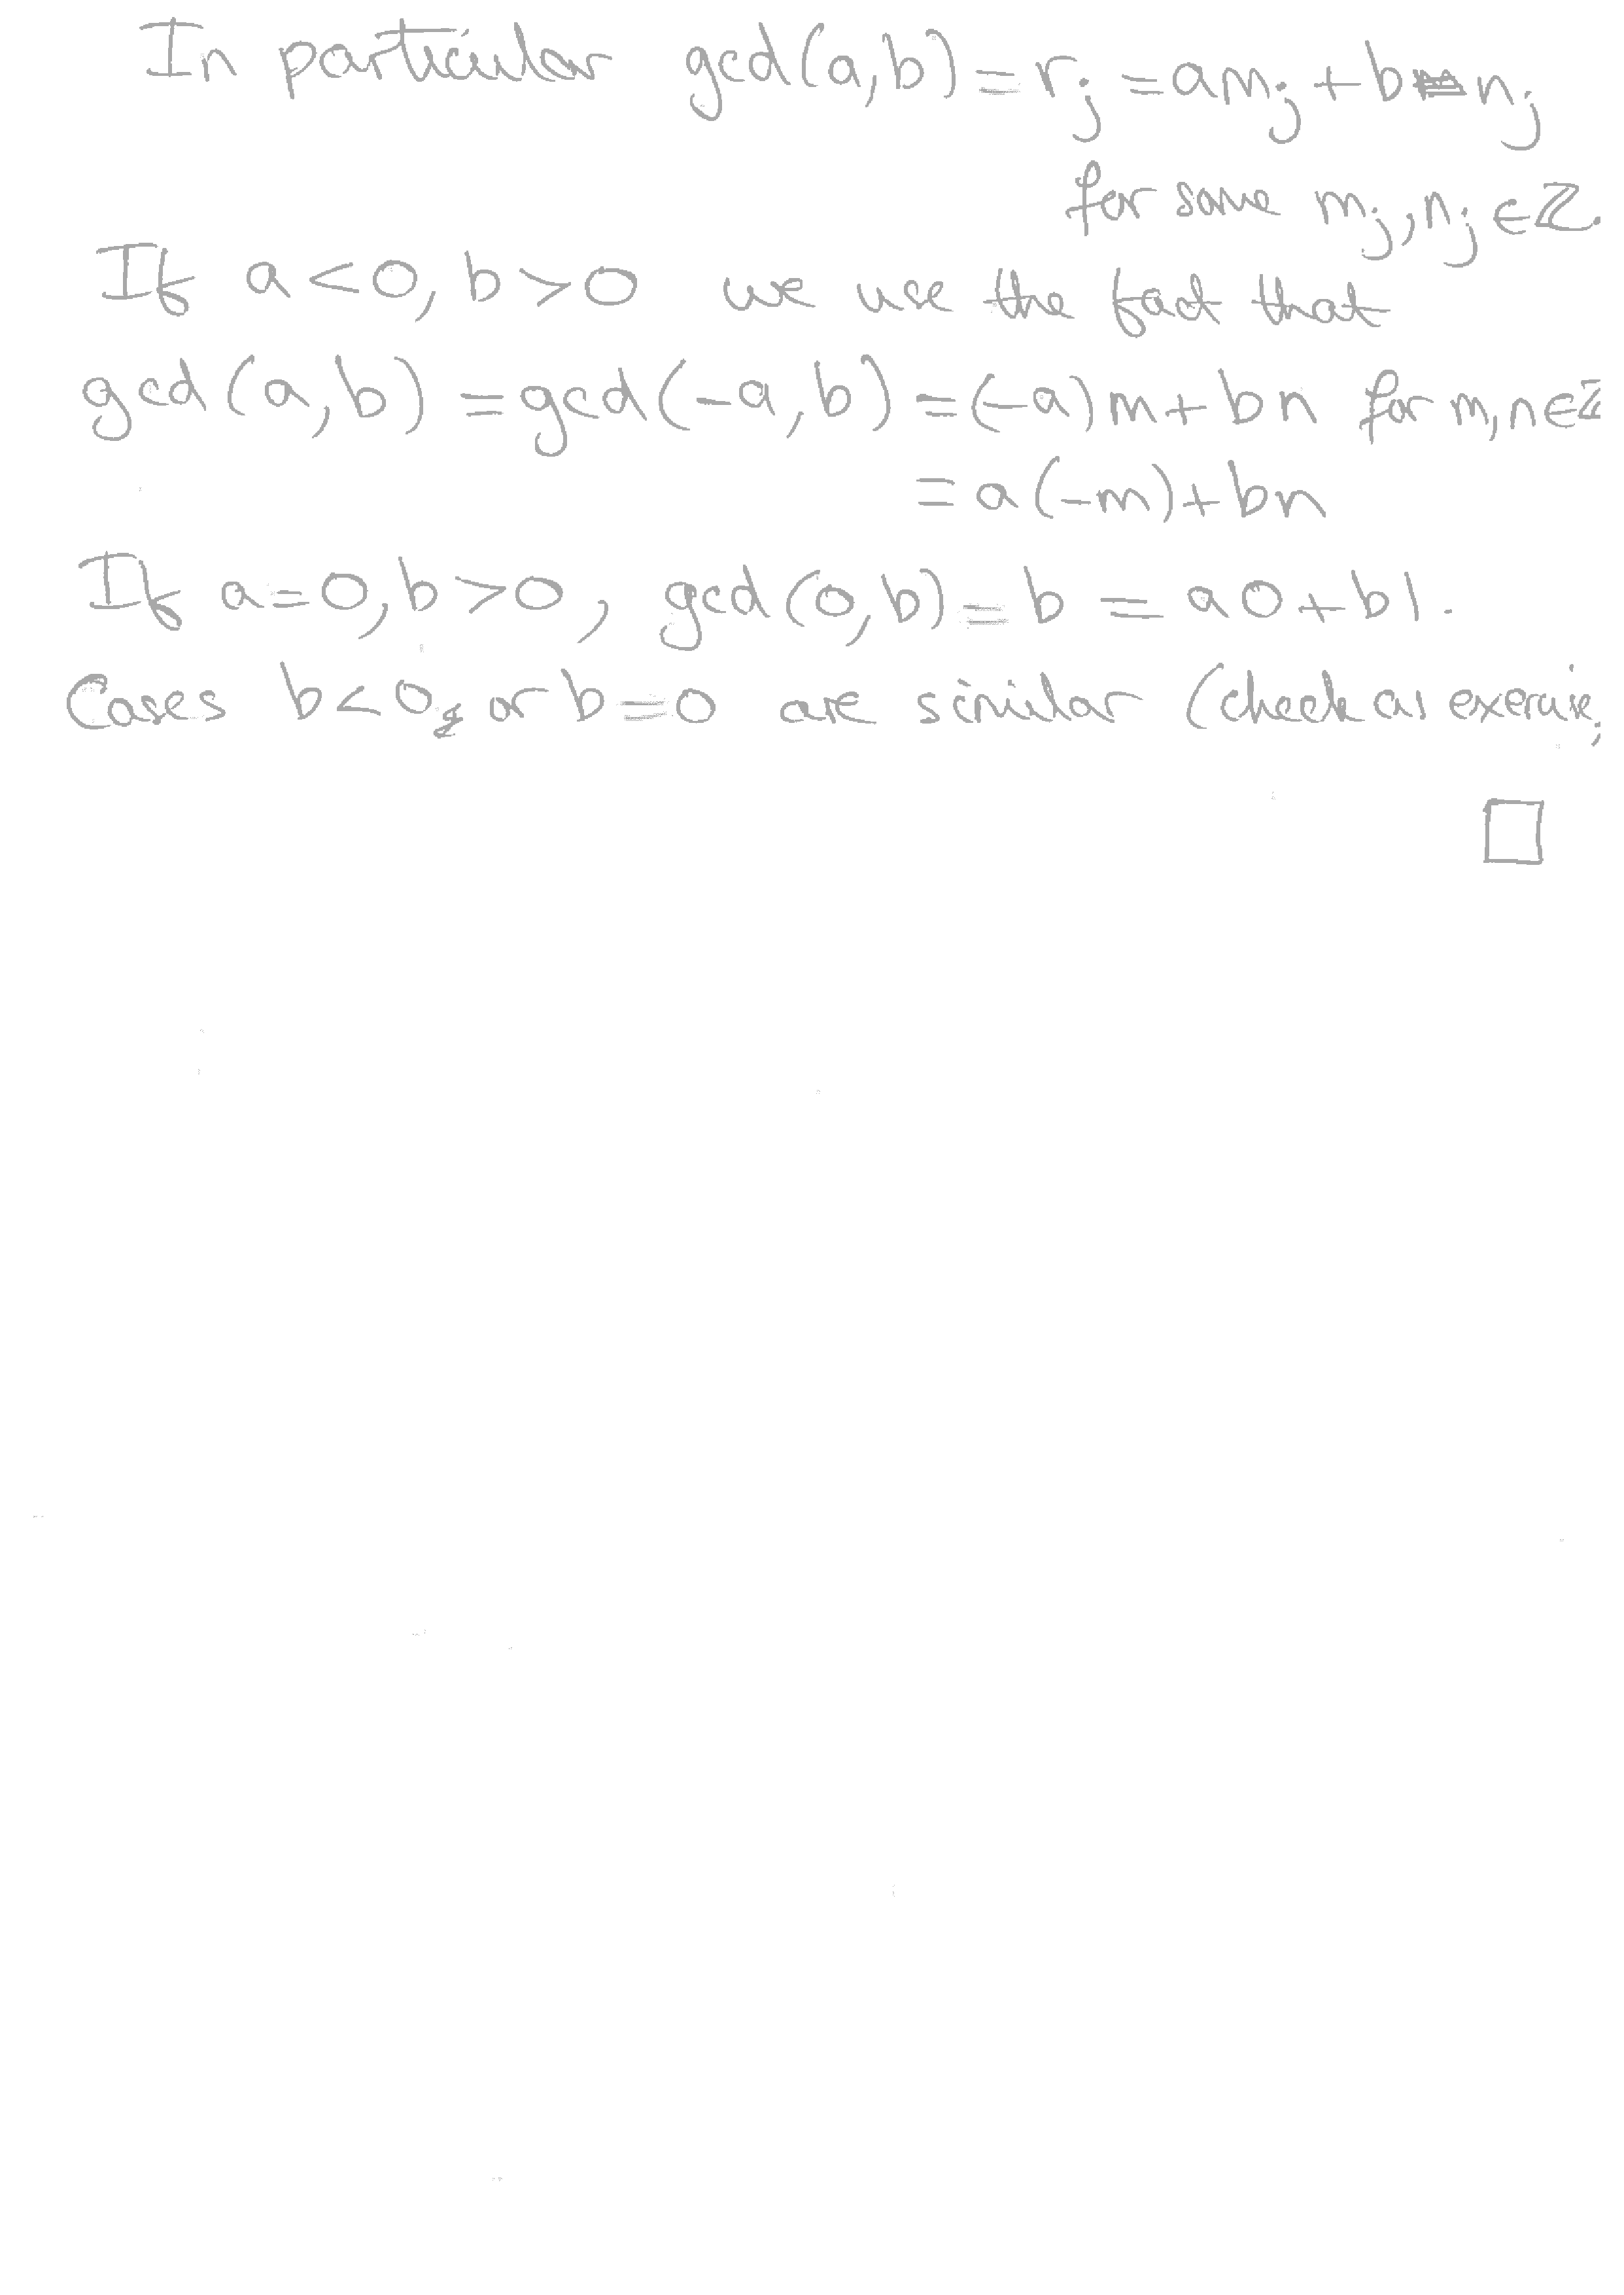 In particular gcd(a,b) = r_j = am_j + bn_j
for some m_j, n_j ∈ ℤ.
If a < 0, b > 0 we use the fact that
gcd(a,b) = gcd(-a,b) = (-a)m + bn for m,n ∈ ℤ
= a(-m) + bn
If a = 0, b > 0, gcd(0,b) = b = a0 + b1.
Cases b < 0, or b = 0 are similar (check as exercise)